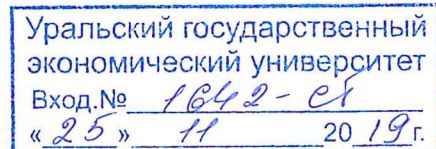 Уральский государственный
экономический университет
Вход.№ 1642-
« 25 » 11 20 19 г.